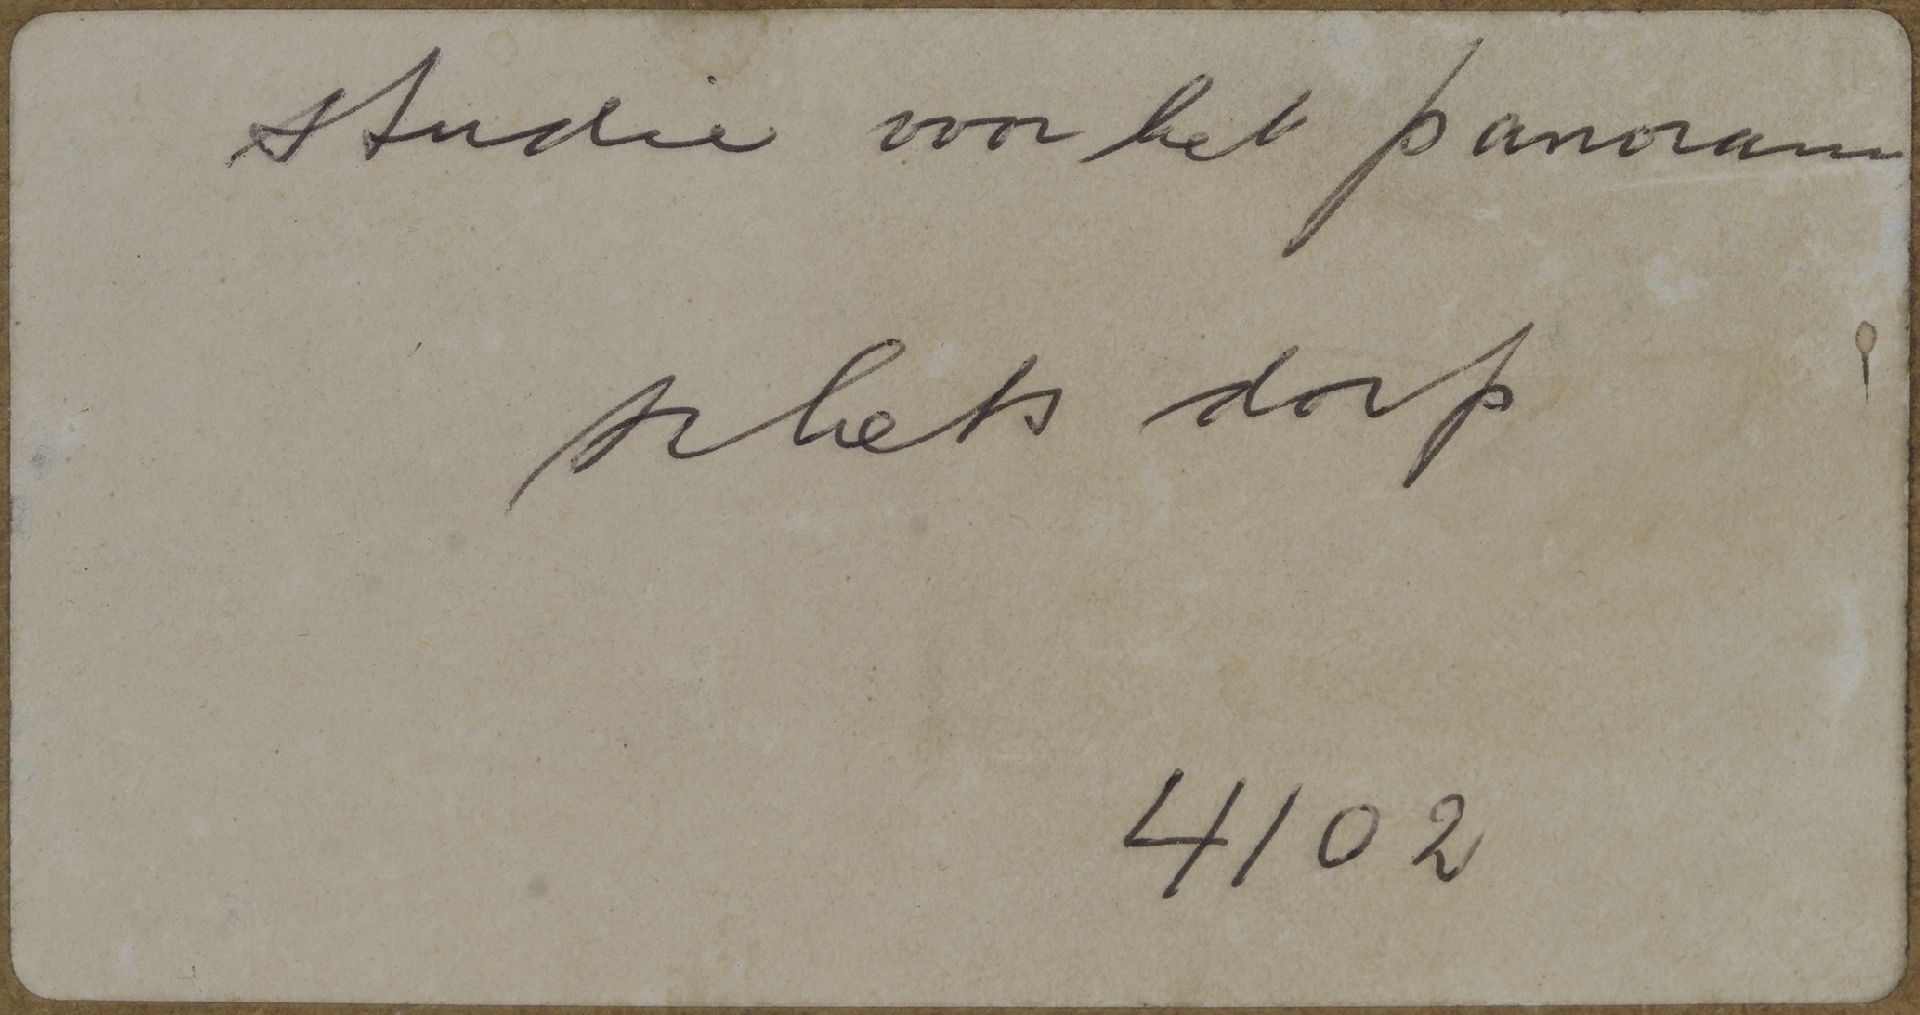 studie voor het panoram
schets dorp
4102